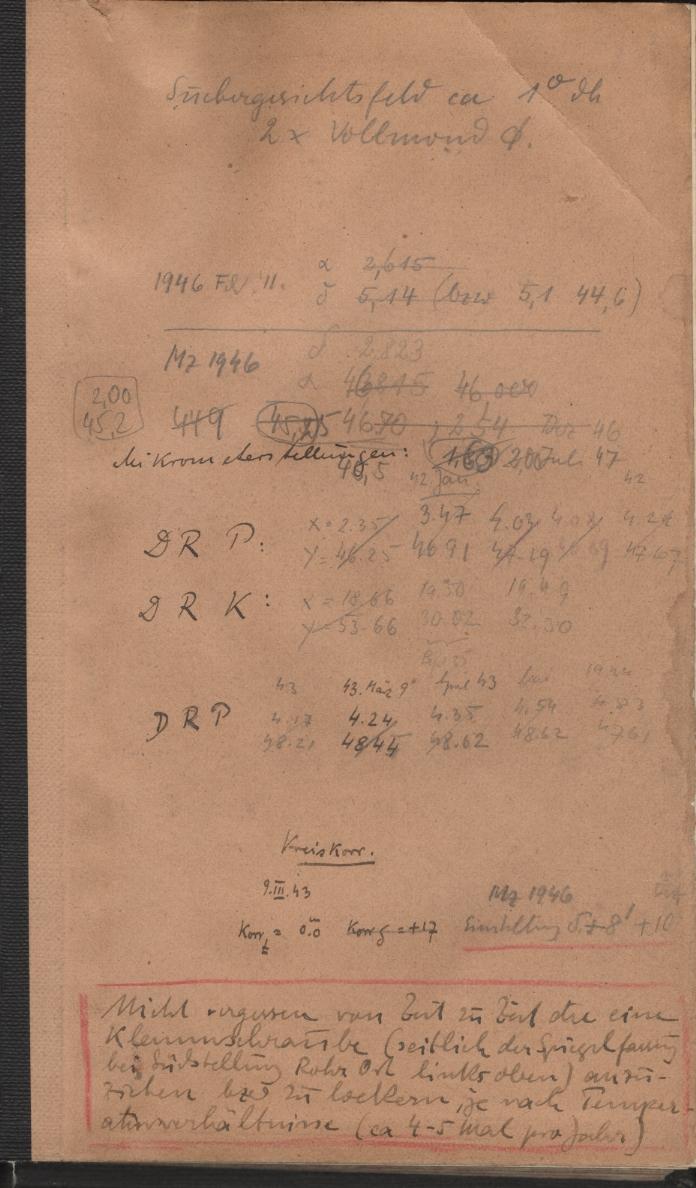 Suchergesichtsfeld ca 1° dh
2 x Vollmond ϕ.
1946 Feb 11. α 2,615
δ 5,14 (bzw 5,1 44,6)
Mz 1946 δ 2,823
α 46 815 46,000
2,00
45,2
449 45,25 46 70 2,54 Dez 46
Mikrometerstellungen: 1,63 2,00 Juli 47
46,5 42 Jan. 42
DRP: x = 2.35 3.47 4.03 4.24
y = 46.25 46 91 47.19 47.67
DRK: x = 18,66 19.30 19.49
y = 53.66 30.02 32.30
43 43. März 9. April 43
DRP 4.17 4.24 4.35 4.54 4.83
48.21 48 45 48.62 48.62
Kreiskorr.
9.III.43
Korr t = 0.0 Korr δ = +17
Mz 1946
Einstellung δ + 8' + 10
Nicht vergessen von Zeit zu Zeit die eine
Klemmschraube (seitlich der Spiegelfassung
bei Südstellung Rohr Ost links oben) anzu-
ziehen bzw zu lockern, je nach Temper-
aturverhältnisse (ca 4-5 Mal pro Jahr)